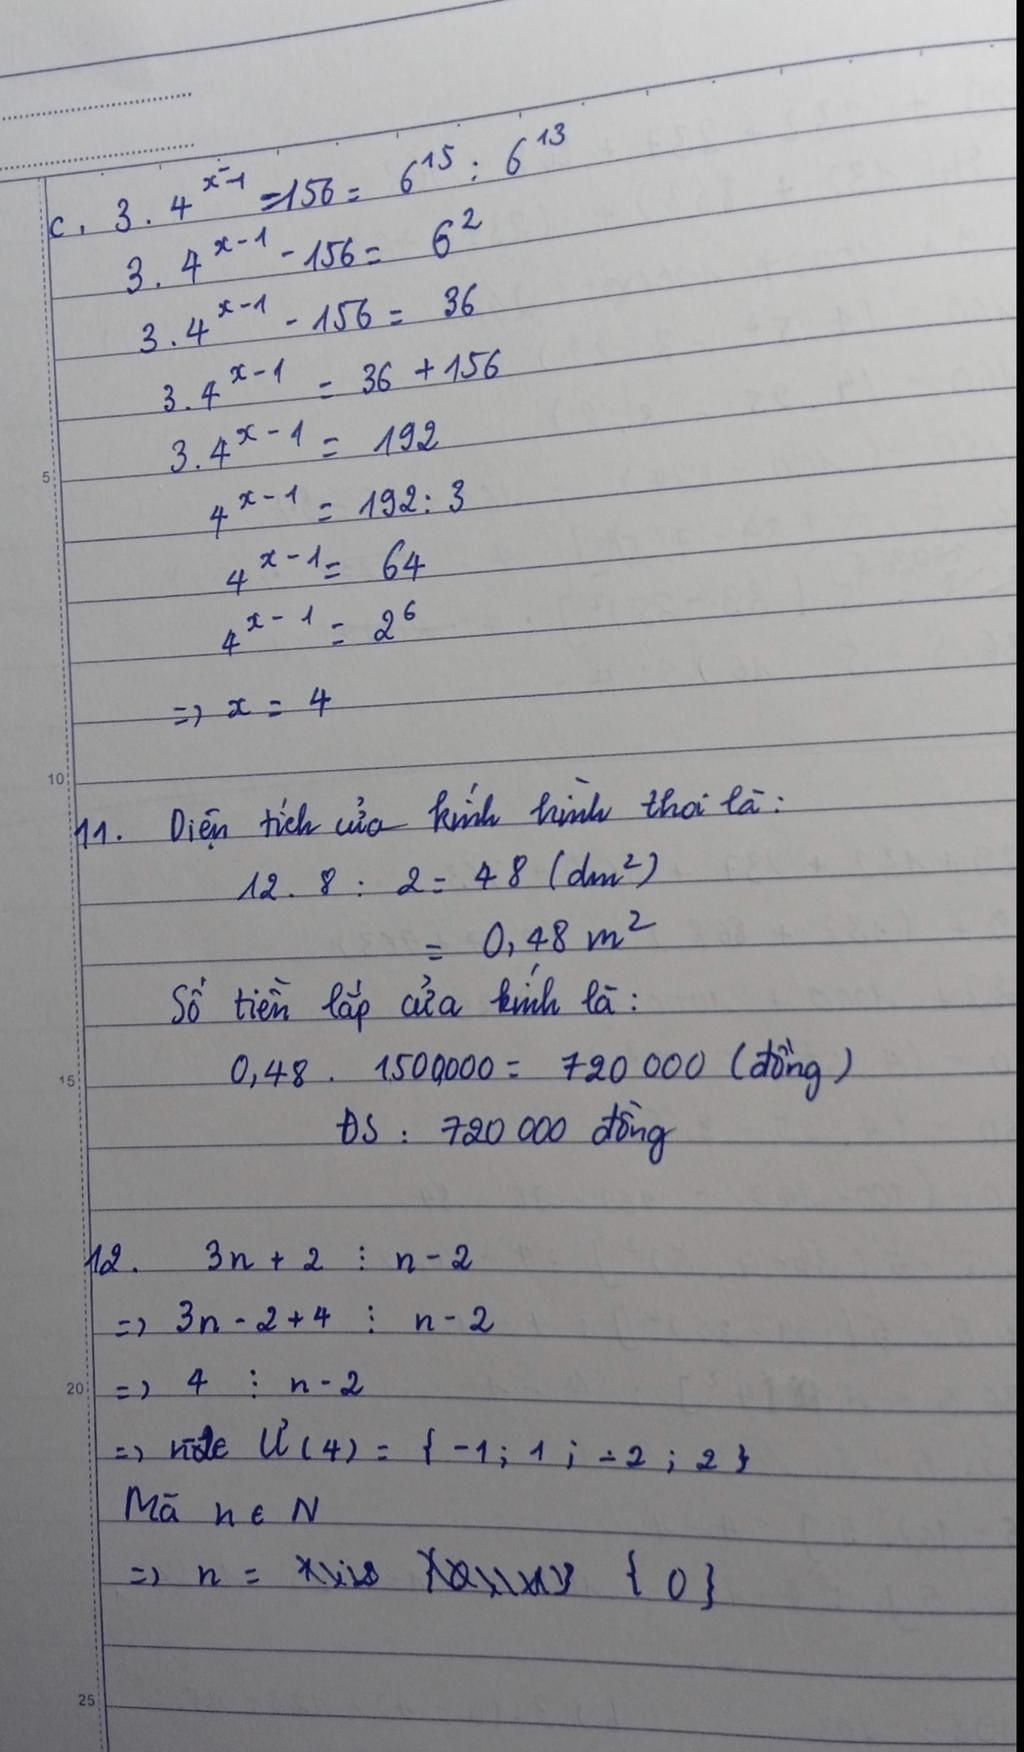 c, 3.4^{x-1} =156= 6^{15} : 6^{13}
3.4^{x-1} - 156 = 6^2
3.4^{x-1} - 156 = 36
3.4^{x-1} = 36 + 156
3.4^{x-1} = 192
5
4^{x-1} = 192 : 3
4^{x-1} = 64
4^{x-1} = 2^6
=> x = 4
10
11. Diện tích cửa kính hình thoi là :
12. 8 : 2 = 48 (dm²)
= 0,48 m²
Số tiền lắp cửa kính là :
15
0,48 . 1500000 = 720 000 (đồng)
ĐS : 720 000 đồng
12. 3n + 2 ⋮ n - 2
=> 3n - 2 + 4 ⋮ n - 2
20
=> 4 ⋮ n - 2
=> Ư(4) = { -1 ; 1 ; -2 ; 2 }
Mà n ∈ N
=> n = { 0 }
25